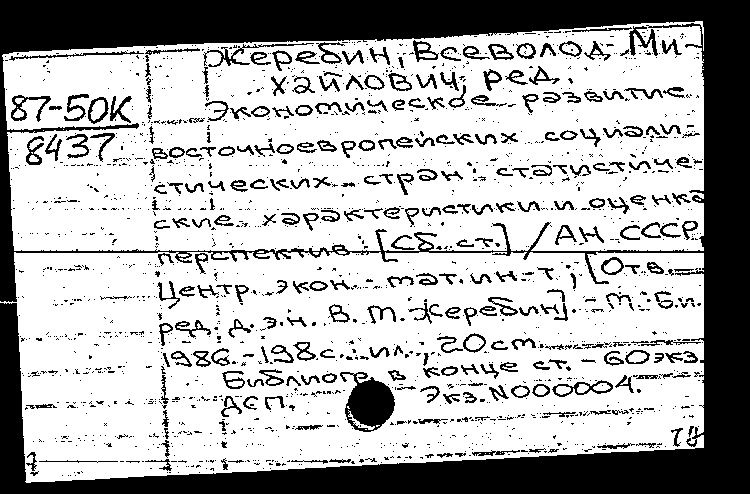 Жеребин, Всеволод Ми-
хайлович, ред.
87-50К
8437
Экономическое развитие
восточноевропейских социали-
стических стран: статистиче-
ские характеристики и оценка
перспектив: [Сб. ст.] / АН СССР,
Центр. экон.-мат. ин-т; [Отв.
ред. д.э.н. В. М. Жеребин]. - М.: Б.и.
1986. - 198с.: ил.; 20см.
Библиогр. в конце ст. - 60экз.
ДСП. Экз. N000004.